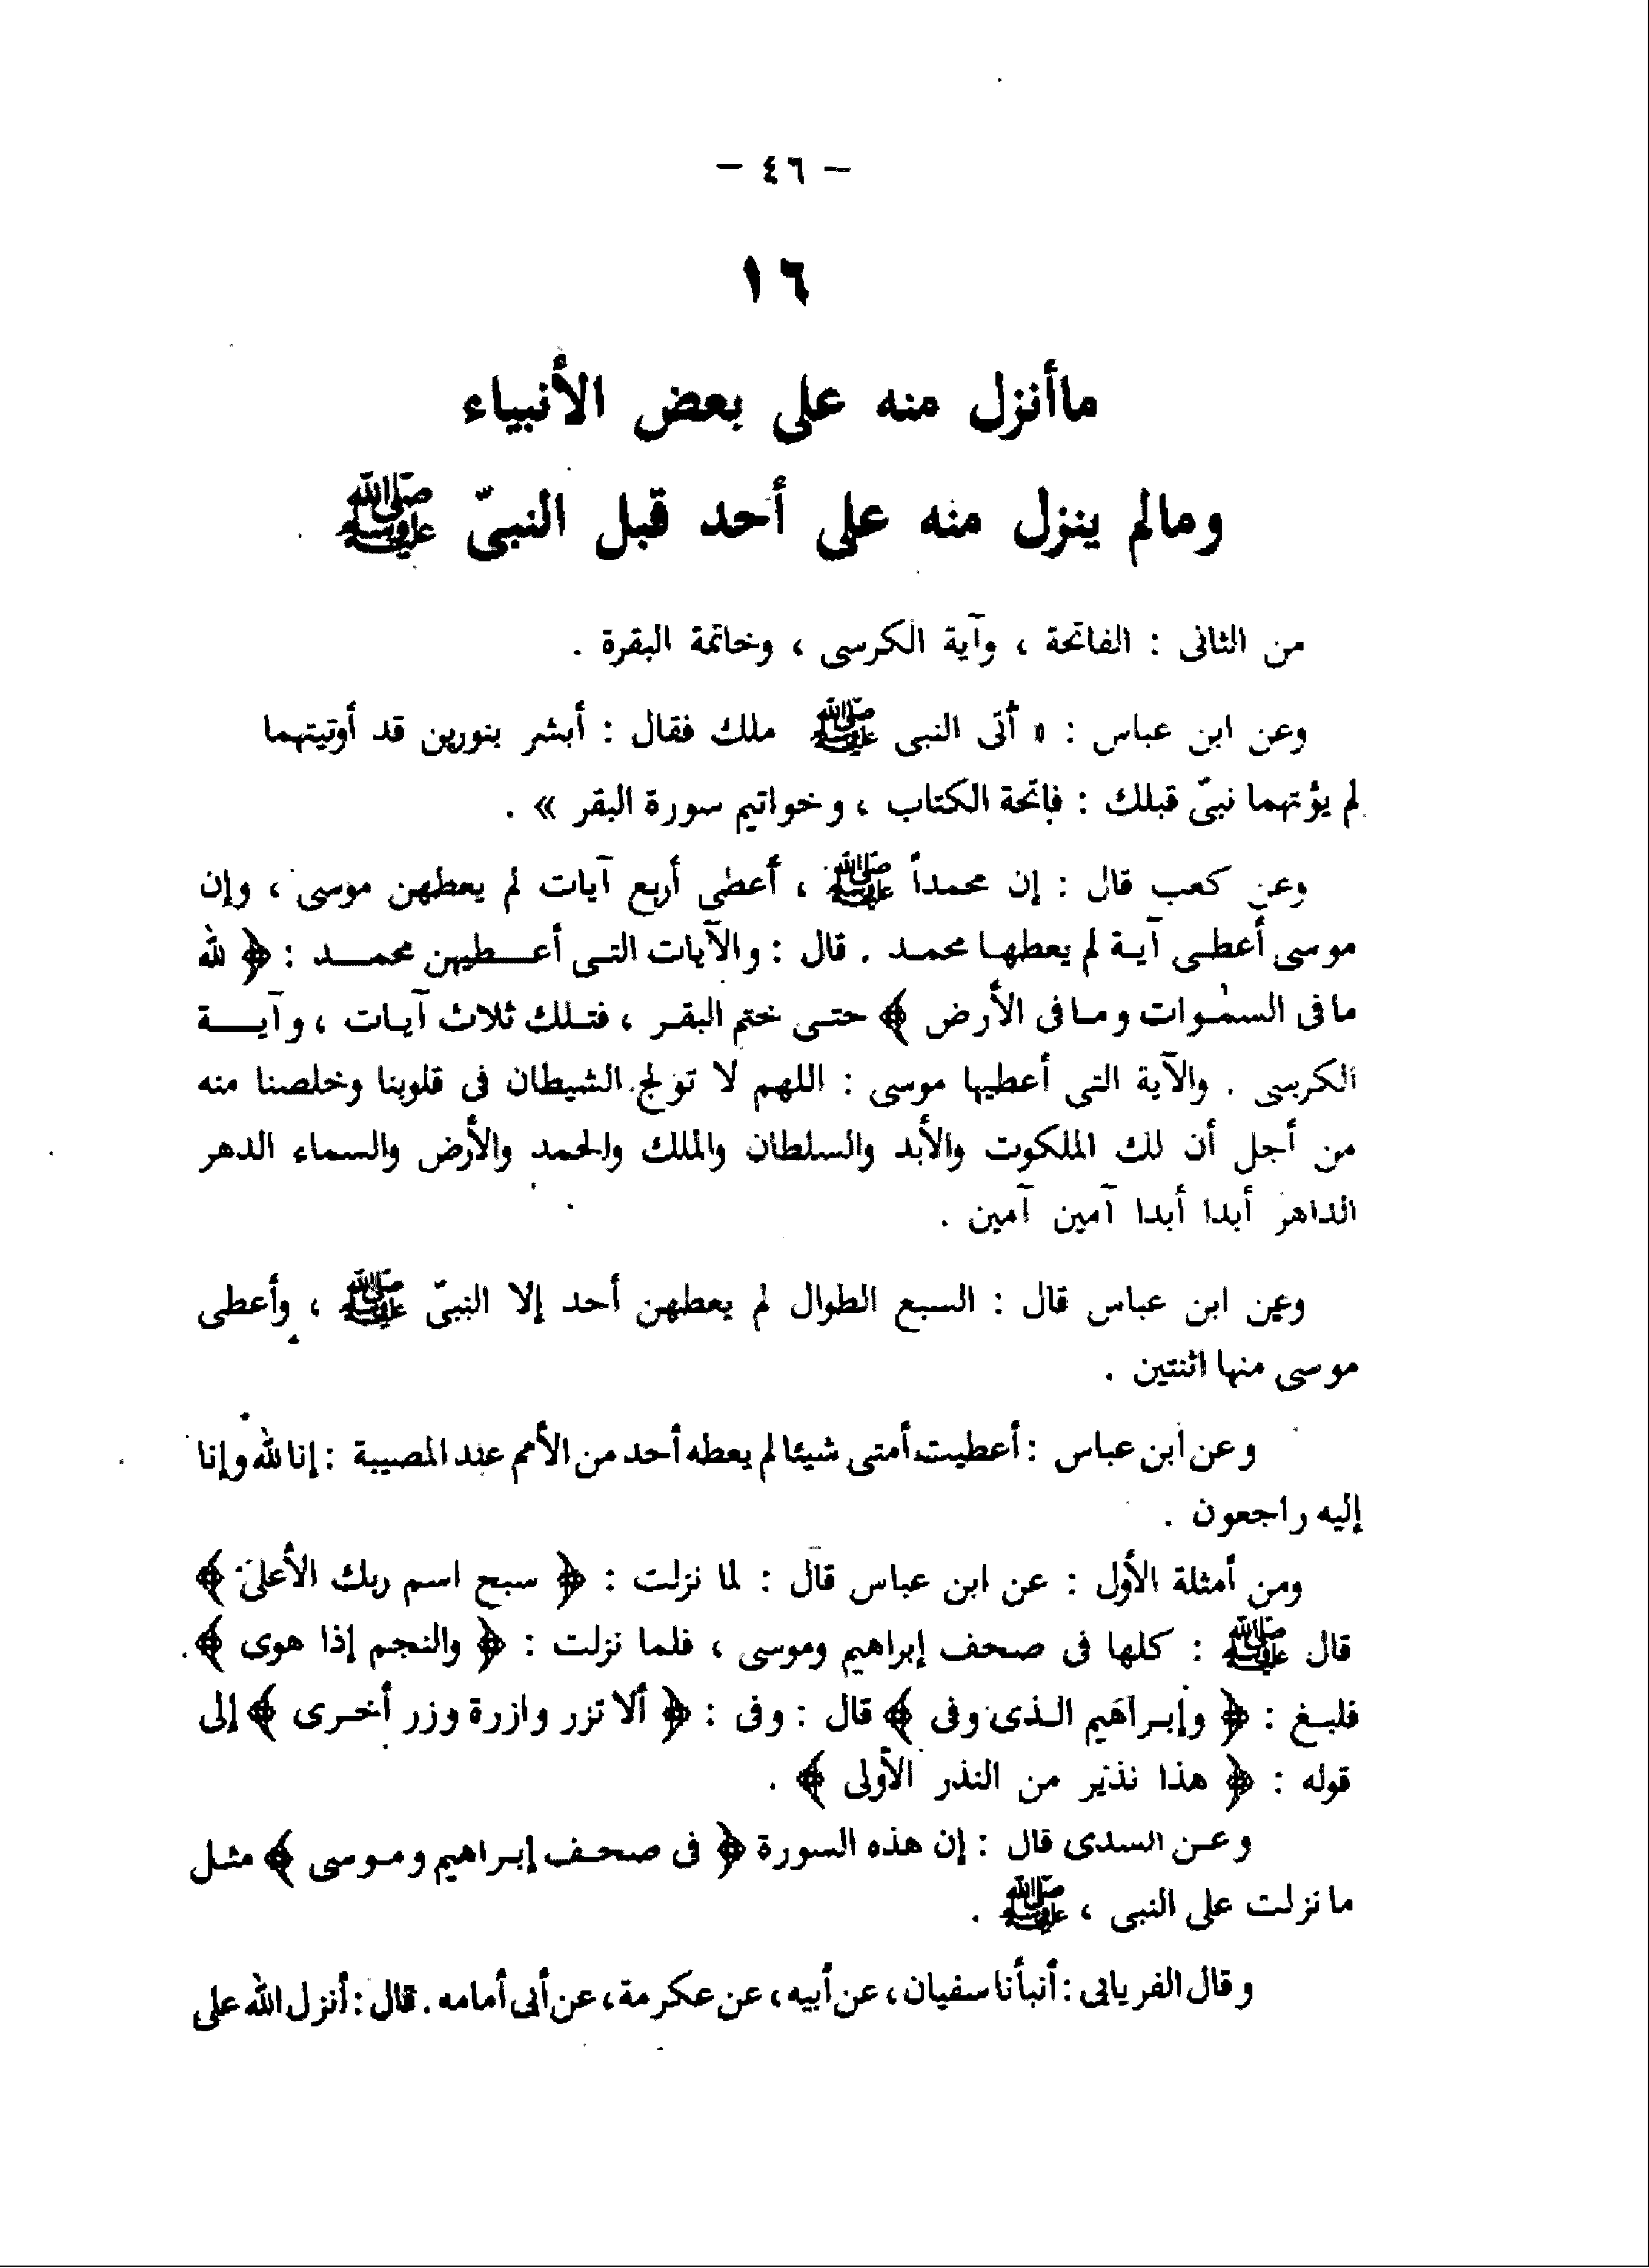 – ٤٦ –
١٦
ماأنزل منه على بعض الأنبياء
ومالم ينزل منه على أحد قبل النبىّ ﷺ
من الثانى : الفاتحة ، وآية الكرسى ، وخاتمة البقرة .
وعن ابن عباس : « أتى النبى ﷺ ملك فقال : أبشر بنورين قد أوتيتهما
لم يؤتهما نبىّ قبلك : فاتحة الكتاب ، وخواتيم سورة البقر » .
وعن كعب قال : إن محمداً ﷺ ، أعطى أربع آيات لم يعطهن موسى ، وإن
موسى أعطى آية لم يعطها محمد . قال : والآيات التى أعطيهن محمد : ﴿ لله
ما فى السمٰوات وما فى الأرض ﴾ حتى ختم البقر ، فتلك ثلاث آيات ، وآية
الكرسى . والآية التى أعطيها موسى : اللهم لا تولج الشيطان فى قلوبنا وخلصنا منه
من أجل أن لك الملكوت والأبد والسلطان والملك والحمد والأرض والسماء الدهر
الداهر أبدا أبدا آمين آمين .
وعن ابن عباس قال : السبع الطوال لم يعطهن أحد إلا النبىّ ﷺ ، وأعطى
موسى منها اثنتين .
وعن ابن عباس : أعطيت أمتى شيئا لم يعطه أحد من الأمم عند المصيبة : إنا لله وإنا
إليه راجعون .
ومن أمثلة الأول : عن ابن عباس قال : لما نزلت : ﴿ سبح اسم ربك الأعلى ﴾
قال ﷺ : كلها فى صحف إبراهيم وموسى ، فلما نزلت : ﴿ والنجم إذا هوى ﴾ .
فلبغ : ﴿ وإبراهيم الذى وفى ﴾ قال : وفى : ﴿ ألا تزر وازرة وزر أخرى ﴾ إلى
قوله : ﴿ هذا نذير من النذر الأولى ﴾ .
وعن السدى قال : إن هذه السورة ﴿ فى صحف إبراهيم وموسى ﴾ مثل
ما نزلت على النبى ، ﷺ .
وقال الفريابى : أنبأنا سفيان ، عن أبيه ، عن عكرمة ، عن أبى أمامه . قال : أنزل الله على